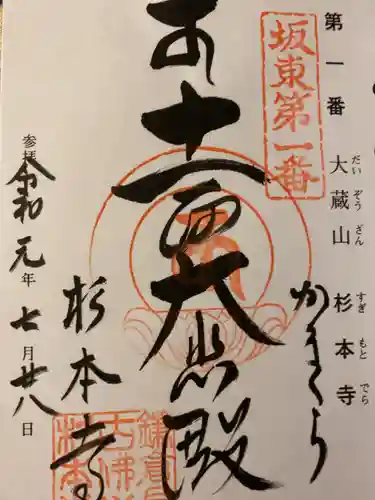 第一番 大蔵山 杉本寺
だいぞうざん すぎもとでら
坂東第一番
かまくら
十一面大悲殿
杉本寺
参拝
令和元年七月廿八日